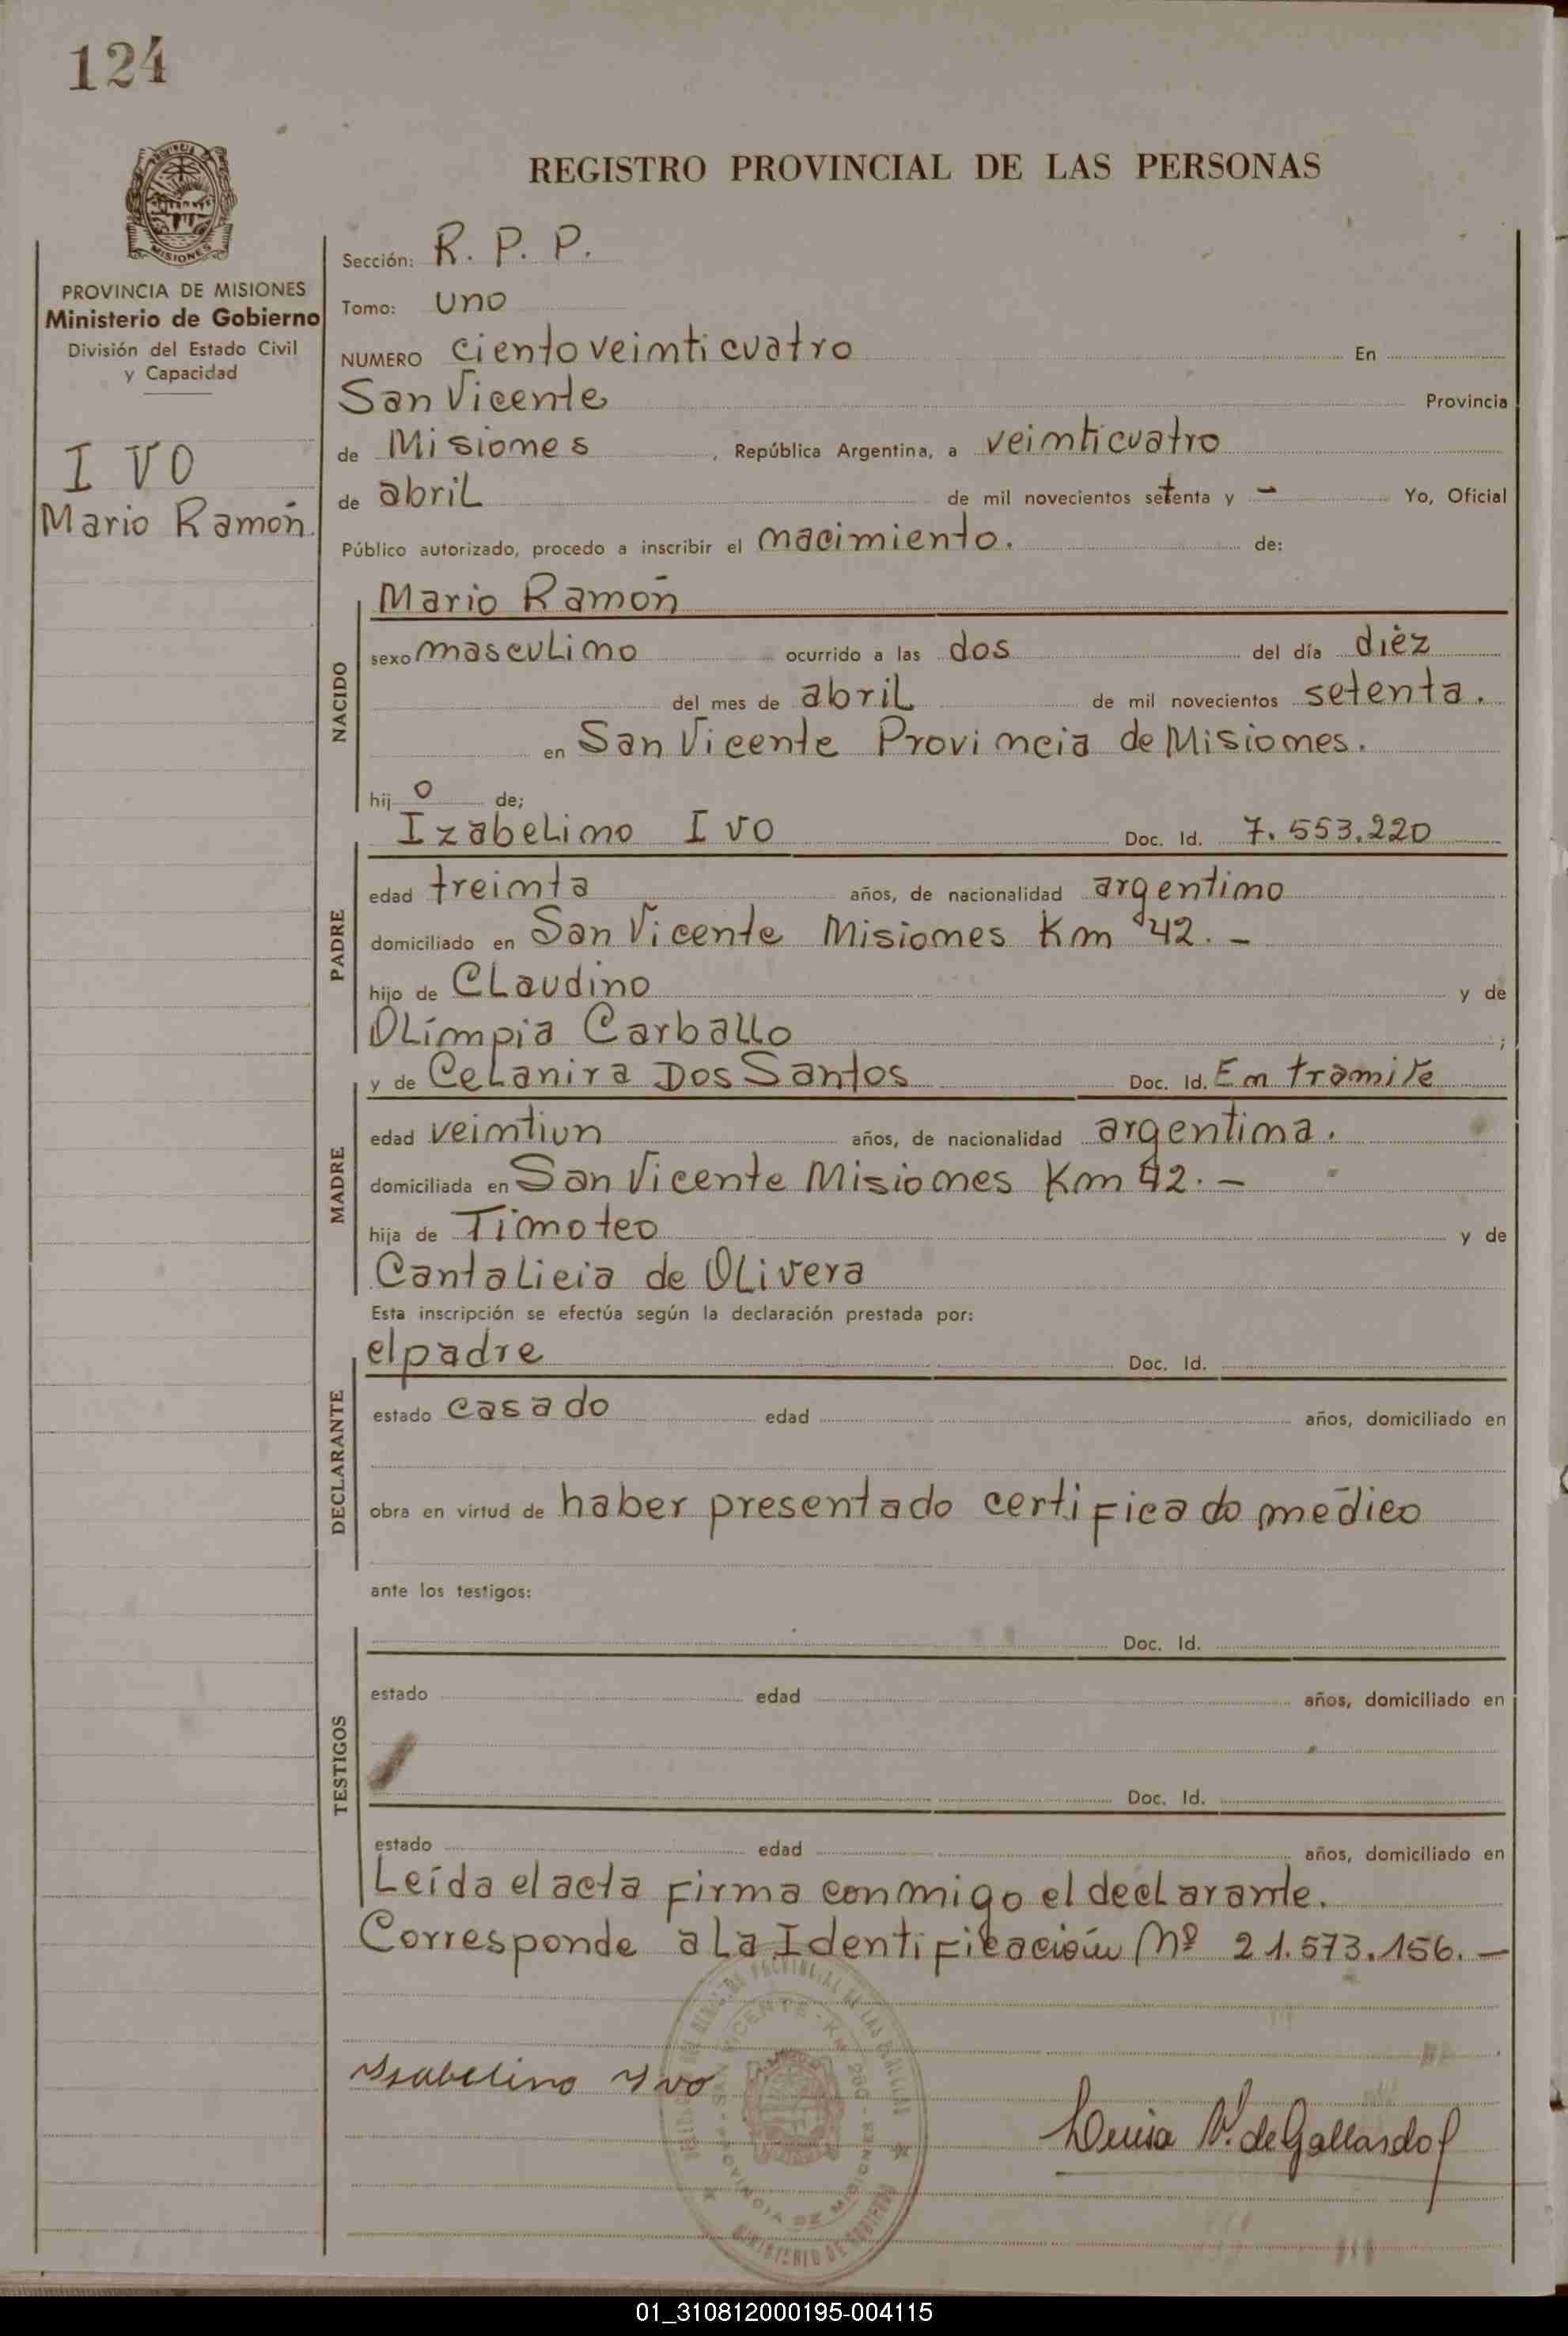 124
PROVINCIA DE MISIONES
Ministerio de Gobierno
División del Estado Civil
y Capacidad
IVO
Mario Ramón
REGISTRO PROVINCIAL DE LAS PERSONAS
Sección: R. P. P.
Tomo: uno
NUMERO Ciento veinticuatro En
San Vicente Provincia
de Misiones, República Argentina, a veinticuatro
de abril de mil novecientos setenta y - Yo, Oficial
Público autorizado, procedo a inscribir el nacimiento. de:
NACIDO
Mario Ramón
sexo masculino ocurrido a las dos del día diéz
del mes de abril de mil novecientos setenta.
en San Vicente Provincia de Misiones.
hij o de;
PADRE
Izabelino Ivo Doc. Id. 7.553.220
edad treinta años, de nacionalidad argentino
domiciliado en San Vicente Misiones Km 42.-
hijo de Claudino y de
Olímpia Carballo ;
MADRE
y de Celanira Dos Santos Doc. Id. En tramite
edad veintiun años, de nacionalidad argentina.
domiciliada en San Vicente Misiones Km 42.-
hija de Timoteo y de
Cantalicia de Olivera
Esta inscripción se efectúa según la declaración prestada por:
DECLARANTE
el padre Doc. Id.
estado casado edad años, domiciliado en
obra en virtud de haber presentado certificado médico
ante los testigos:
TESTIGOS
Doc. Id.
estado edad años, domiciliado en
Doc. Id.
estado edad años, domiciliado en
Leída el acta firma conmigo el declarante.
Corresponde a la Identificación Nº 21.573.156.-
Isabelino Ivo
Luisa V. de Gallardo
SAN VICENTE - KM
PROVINCIA DE MISIONES
MINISTERIO DE GOBIERNO
01_310812000195-004115